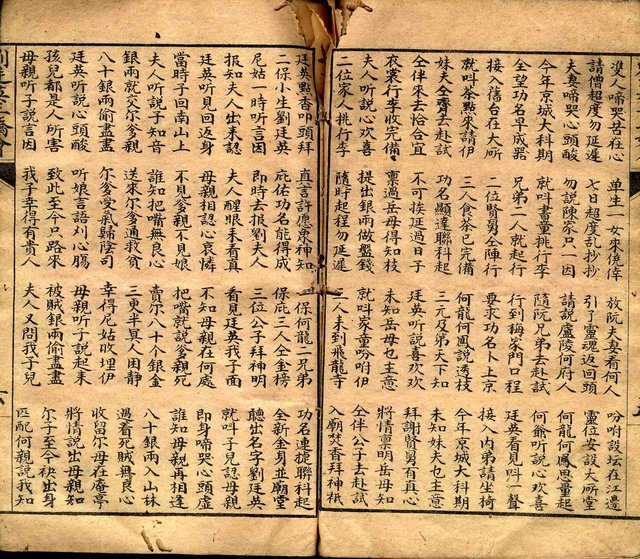 雙人啼哭苦在心 單生一女來僥倖 放阮夫妻看何人 吩咐設坛在江邊
請僧超度勿延遲 七日超度乱抄抄 引了灵魂返回頭 灵位安設大所堂
夫妻啼哭心頭酸 勿說陳家只一因 請說盧陵何府人 何龍何鳳思量起
今年京城大科期 就叫書童挑行李 隨阮兄弟去赴試 何爺听說心欢喜
全望功名平成器 兄弟二人就起行 行到梅家門口程 廷英看見叫一聲
接入舊台在大所 二位賢舅仝陣行 要求功名卜上京 接入内弟請坐椅
就叫茶點來請伊 三人食茶已完備 何龍何鳳說透枝 今年京城大科期
妹夫仝齊去赴試 功名顯達聯科起 三元及弟天下知 未知妹夫乜主意
仝伴來去恰合宜 不可挨延過日子 廷英听說喜欢欢 拜謝賢舅有真心
衣裳行李收完備 禀過岳母得知枝 未知岳母乜主意 將情禀明岳母知
夫人听說心欢喜 提出銀兩做盤錢 就叫家童吩咐伊 仝伴公子去赴試
二位家人挑行李 隨時起程勿延遲 三人來到飛龍寺 入廟焚香拜神祇
廷英點香叩頭拜 直言許愿稟神知 一保何龍二兄弟 功名連捷聯科起
二保小生劉廷英 庇佑功名能得成 保庇三人仝金榜 全新金身並廟堂
尼姑一時听言因 即時去报劉夫人 三位公子拜神明 聽出名字劉廷英
报知夫人出來認 夫人醒眼來看真 看見廷英我子面 就叫子兒認母親
廷英听見回返身 母親相認心哀憐 不知母親在何處 即身啼哭心頭虛
當時子回南山上 不見爹親不見娘 把嘴就說爹親死 誰知母親再相逢
夫人听說子知音 誰知把嘴無良心 賣尔八十个銀金 八十銀兩入山林
銀兩就交尔爹親 送來尔爹通救貧 三更半真人困静 過着死賊無良心
八十銀兩偷盡盡 尔爹受氣歸陰司 幸得尼姑收埋伊 收留尔母在庵亭
廷英听說心頭酸 听娘言語刈心腸 母親听子說起來 將情說出母親知
孩兒都是人所害 致此至今只路來 被賊銀兩偷盡盡 尔子至今秧出身
母親听子說言因 我子幸得有貴人 夫人又問我子兒 匹配何親說我知